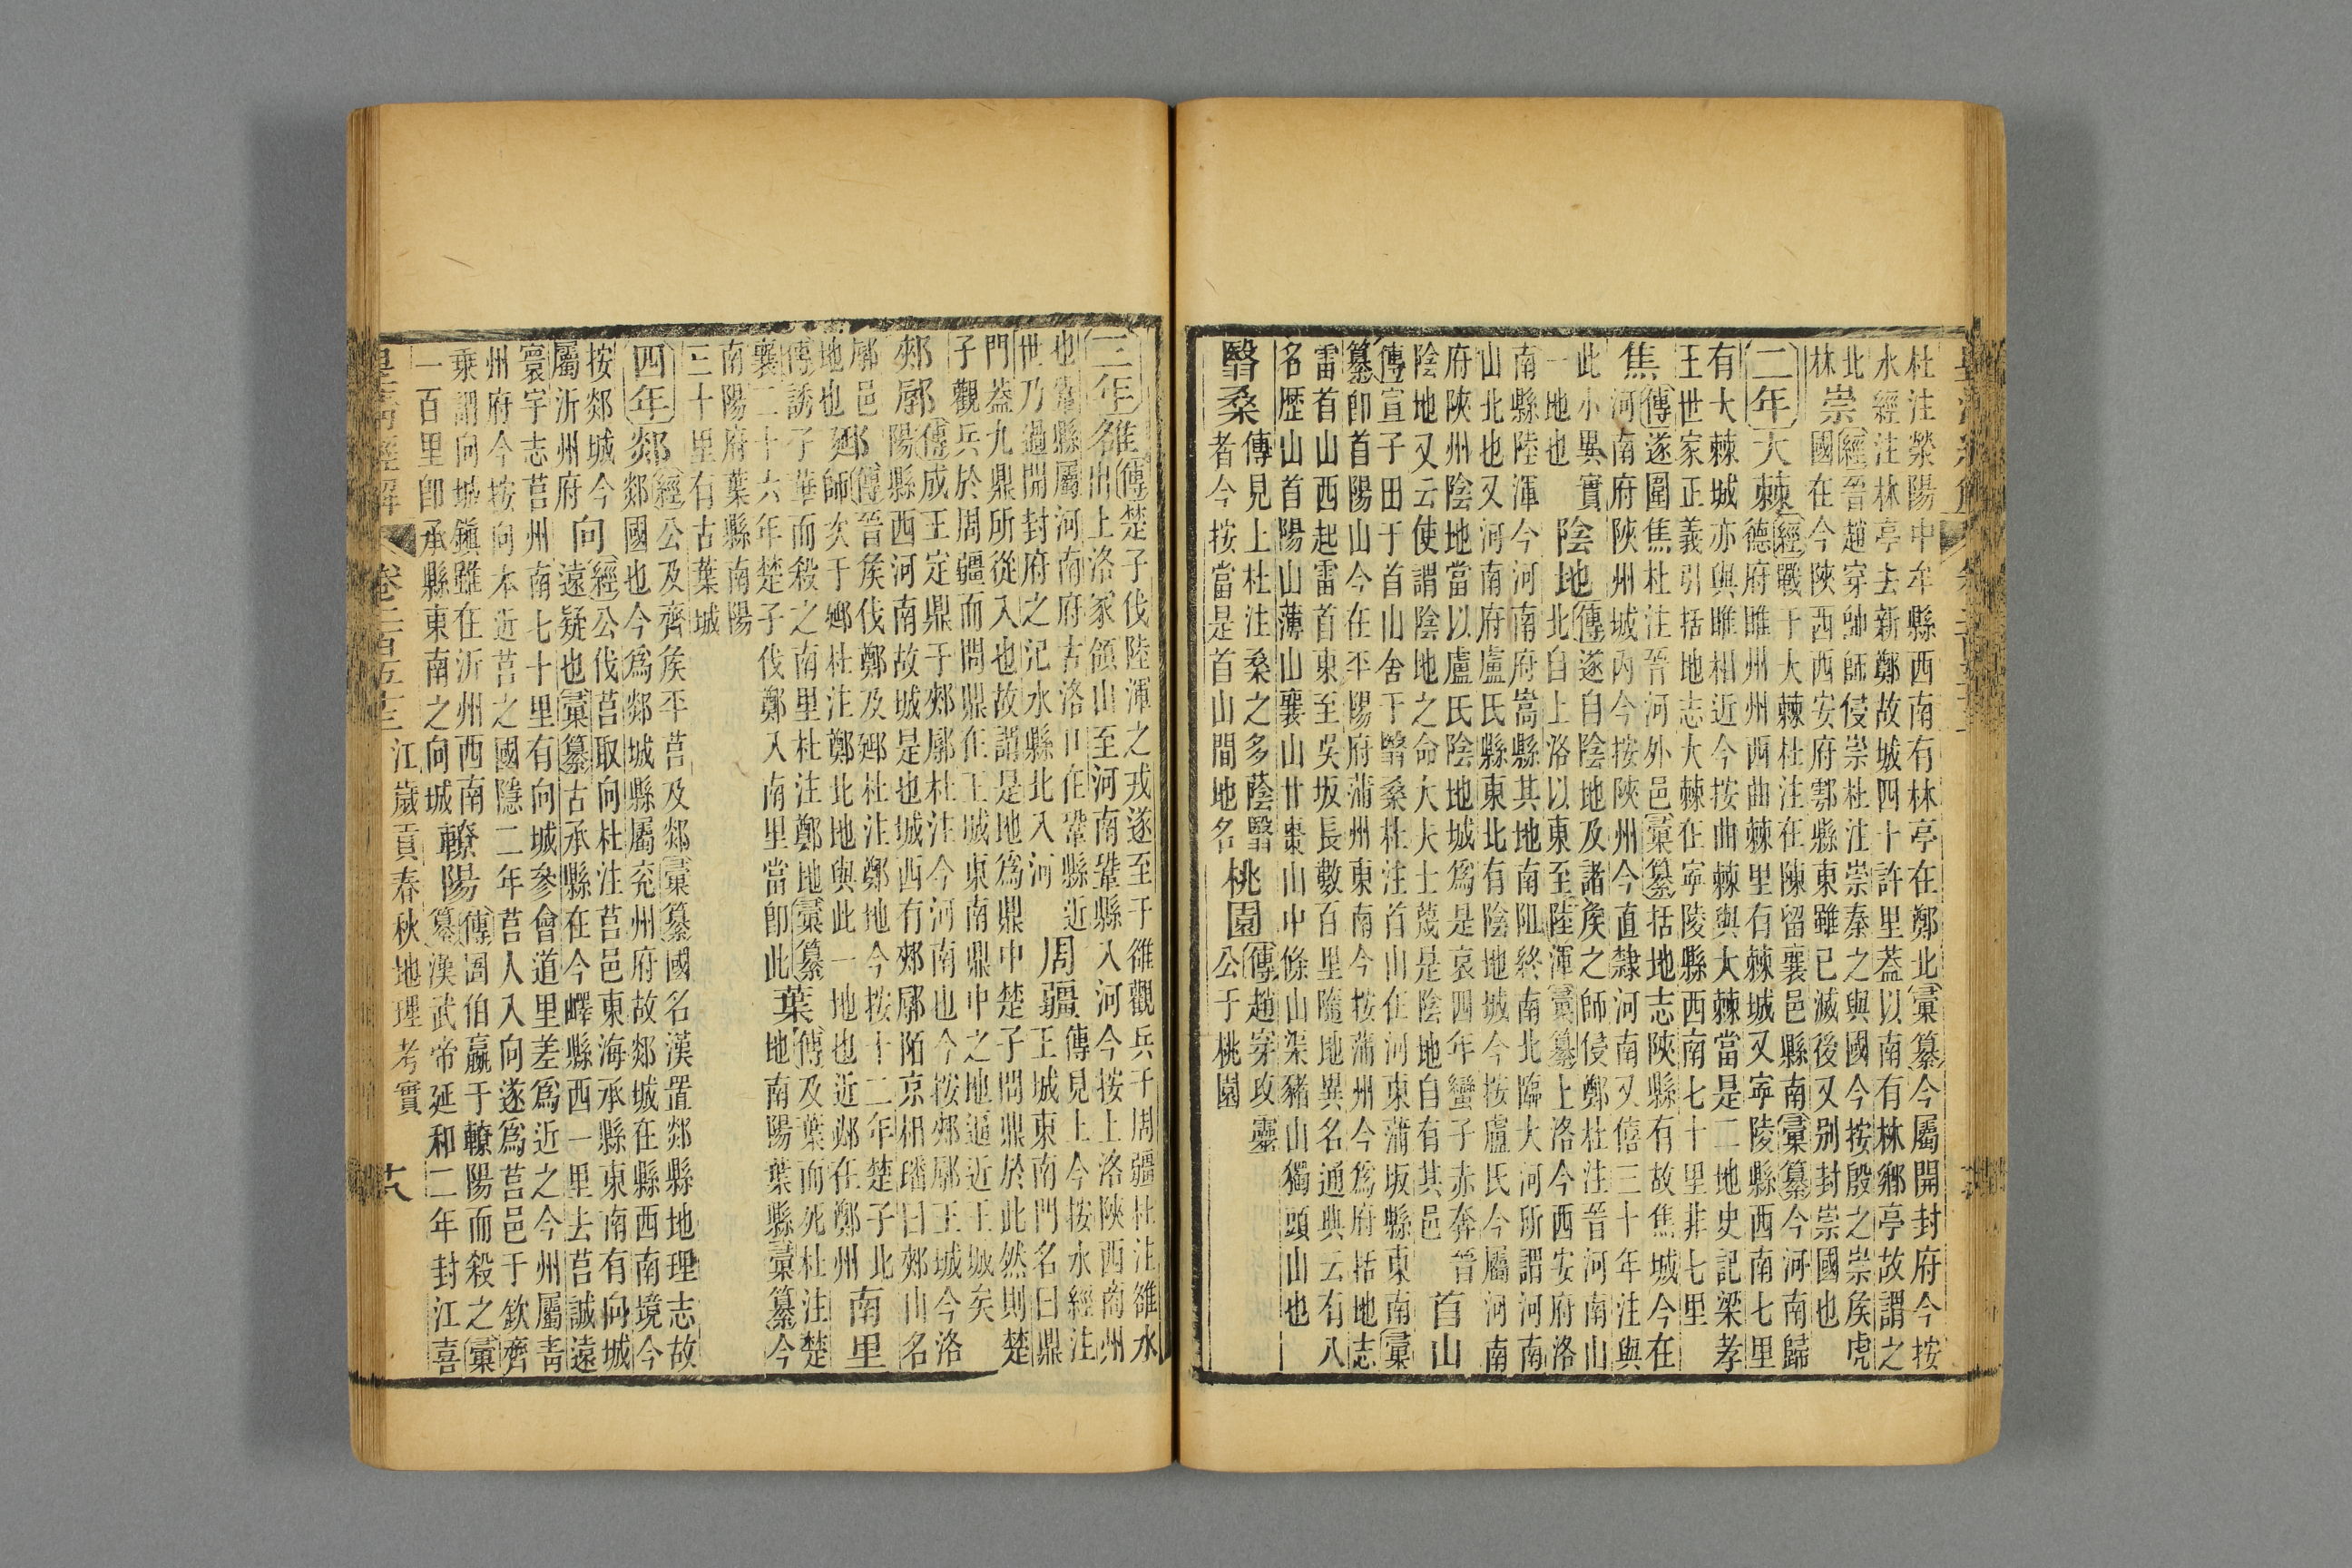 杜注滎陽中牟縣西南有林亭在鄭北彙纂今屬開封府今按
水經注林亭去新鄭故城四十許里蓋以南有林鄉亭故謂之
北
林
崇
經晉趙穿帥師侵崇杜注崇秦之與國今按殷之崇矦虎
國在今陝西西安府鄠縣東雖已滅後又別封崇國也
二年
大棘
經戰于大棘杜注在陳留襄邑縣南彙纂今河南歸
德府睢州州西曲棘里有棘城又寧陵縣西南七里
有大棘城亦與睢相近今按曲棘與大棘當是二地史記梁孝
王世家正義引括地志大棘在寧陵縣西南七十里非七里
焦
傳遂圍焦杜注晉河外邑彙纂括地志陝縣有故焦城今在
河南府陝州城內今按陝州今直隸河南又僖三十年注與
此小異實
一地也
陰地
傳遂自陰地及諸矦之師侵鄭杜注晉河南山
北自上洛以東至陸渾彙纂上洛今西安府洛
南縣陸渾今河南府嵩縣其地南阻終南北臨大河所謂河南
山北也又河南府盧氏縣東北有陰地城今按盧氏今屬河南
府陝州陰地當以盧氏陰地城爲是哀四年蠻子赤奔晉
陰地又云使謂陰地之命大夫士蔑是陰地自有其邑
首山
傳宣子田于首山舍于翳桑杜注首山在河東蒲坂縣東南彙
纂卽首陽山今在平陽府蒲州東南今按蒲州今爲府括地志
雷首山西起雷首東至吳坂長數百里隨地異名通典云有八
名歷山首陽山薄山襄山甘棗山中條山渠豬山獨頭山也
翳桑
傳見上杜注桑之多蔭翳
者今按當是首山間地名
桃園
傳趙穿攻靈
公于桃園
三年
雒
傳楚子伐陸渾之戎遂至于雒觀兵于周疆杜注雒水
出上洛冢領山至河南鞏縣入河今按上洛陝西商州
也鞏縣屬河南府古洛口在鞏縣近
世乃過開封府之汜水縣北入河
周疆
傳見上今按水經注
王城東南門名曰鼎
門蓋九鼎所從入也故謂是地爲鼎中楚子問鼎於此然則楚
子觀兵於周疆而問鼎在王城東南鼎中之地逼近王城矣
郟鄏
傳成王定鼎于郟鄏杜注今河南也今按郟鄏王城今洛
陽縣西河南故城是也城西有郟鄏陌京相璠曰郟山名
鄏邑
地也
郔
傳晉矦伐鄭及郔杜注鄭地今按十二年楚子北
師次于郔杜注鄭北地與此一地也近郔在鄭州
南里
傳誘子華而殺之南里杜注鄭地彙纂
襄二十六年楚子伐鄭入南里當卽此
葉
傳及葉而死杜注楚
地南陽葉縣彙纂今
南陽府葉縣南陽
三十里有古葉城
四年
郯
經公及齊矦平莒及郯彙纂國名漢置郯縣地理志故
郯國也今爲郯城縣屬兖州府故郯城在縣西南境今
按郯城今
屬沂州府
向
經公伐莒取向杜注莒邑東海承縣東南有向城
遠疑也彙纂古承縣在今嶧縣西一里去莒誠遠
寰宇志莒州南七十里有向城參會道里差爲近之今州屬青
州府今按向本近莒之國隱二年莒人入向遂爲莒邑于欽齊
乘謂向城鎭雖在沂州西南
一百里卽承縣東南之向城
轑陽
傳圄伯嬴于轑陽而殺之彙
纂漢武帝延和二年封江喜
皇清經解
卷二百五十三
江歲貢春秋地理考實